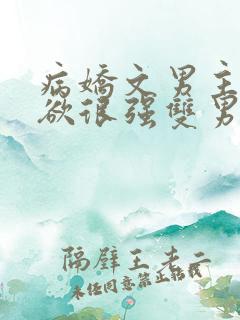 病嬌文男主
欲很强雙男
隔壁王老二
未经同意禁止转载